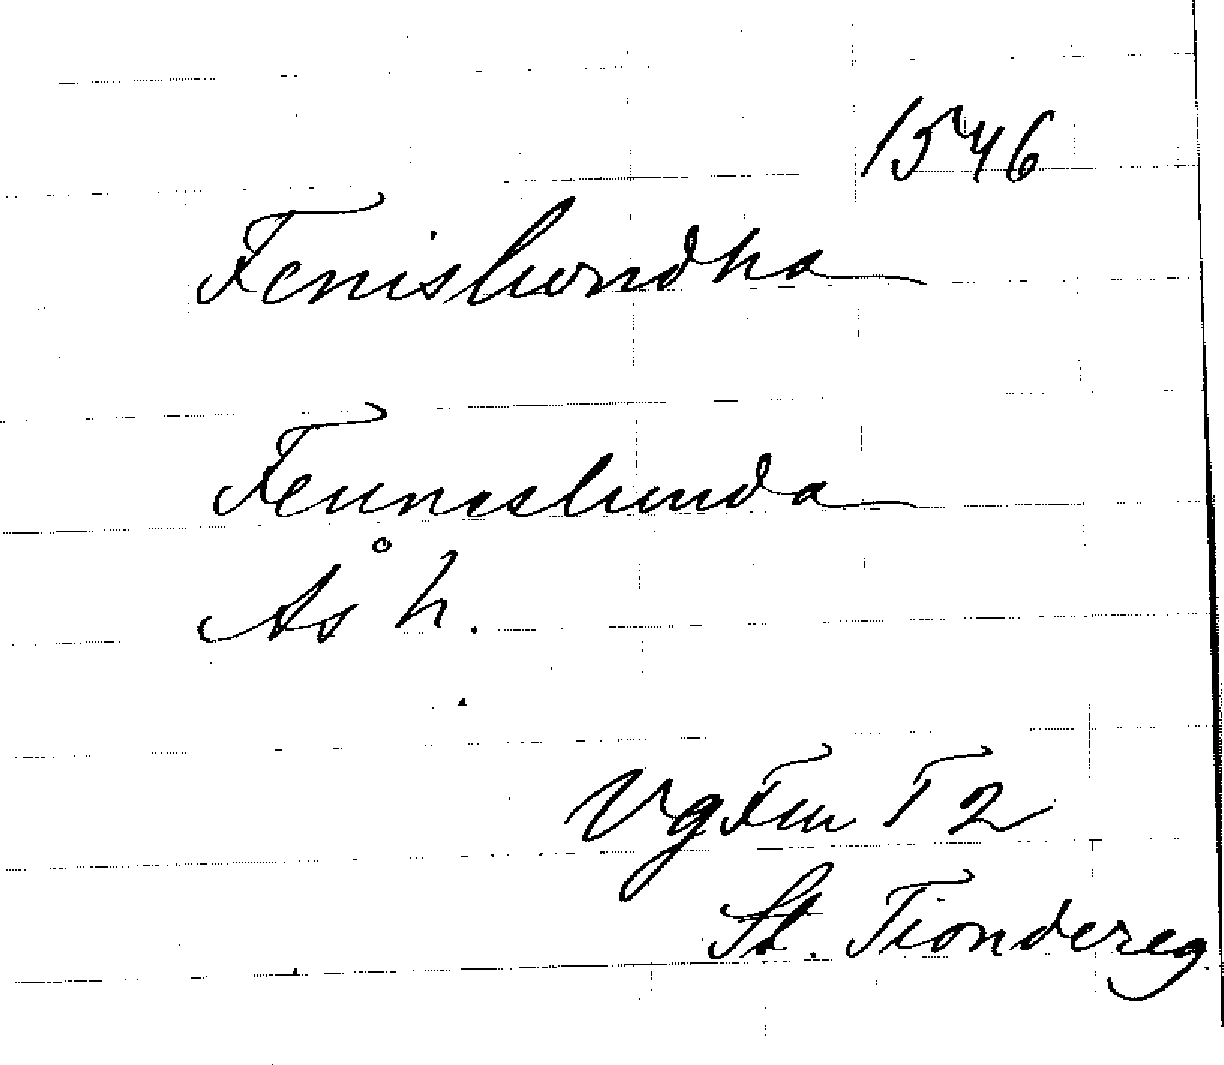 1546
Fenislundha
Fenneslunda
Ås h.
Vg Fru T 2
St. Tiondereg